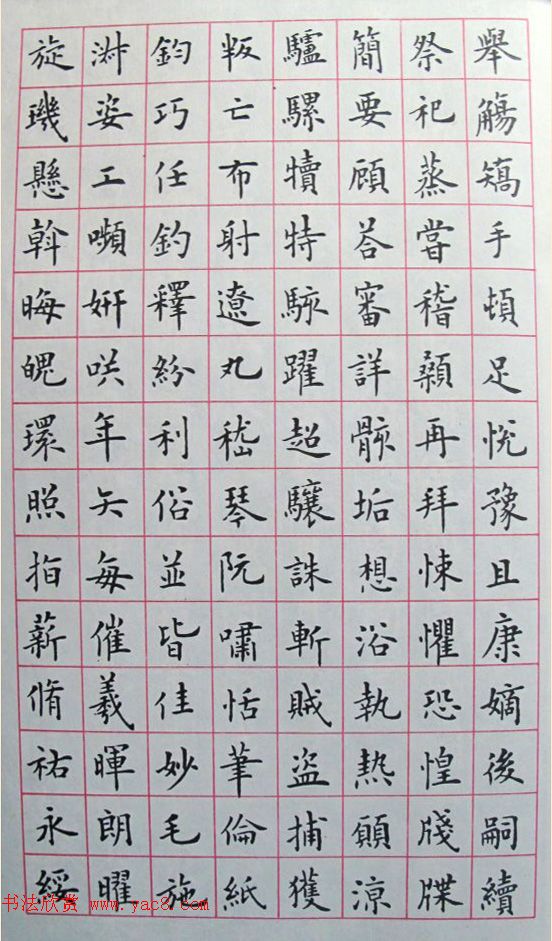 舉觴矯手頓足悅豫且康嫡後嗣續
祭祀蒸甞稽顙再拜悚懼恐惶牋牒
簡要顧荅審詳骸垢想浴執熱願涼
驢騾犢特駭躍超驤誅斬賊盜捕獲
叛亡布射遼丸嵇琴阮嘯恬筆倫紙
鈞巧任釣釋紛利俗並皆佳妙毛施
淑姿工嚬妍咲年矢每催羲暉朗曜
旋璣懸斡晦魄環照指薪脩祐永綏
书法欣赏 www.yac8.com